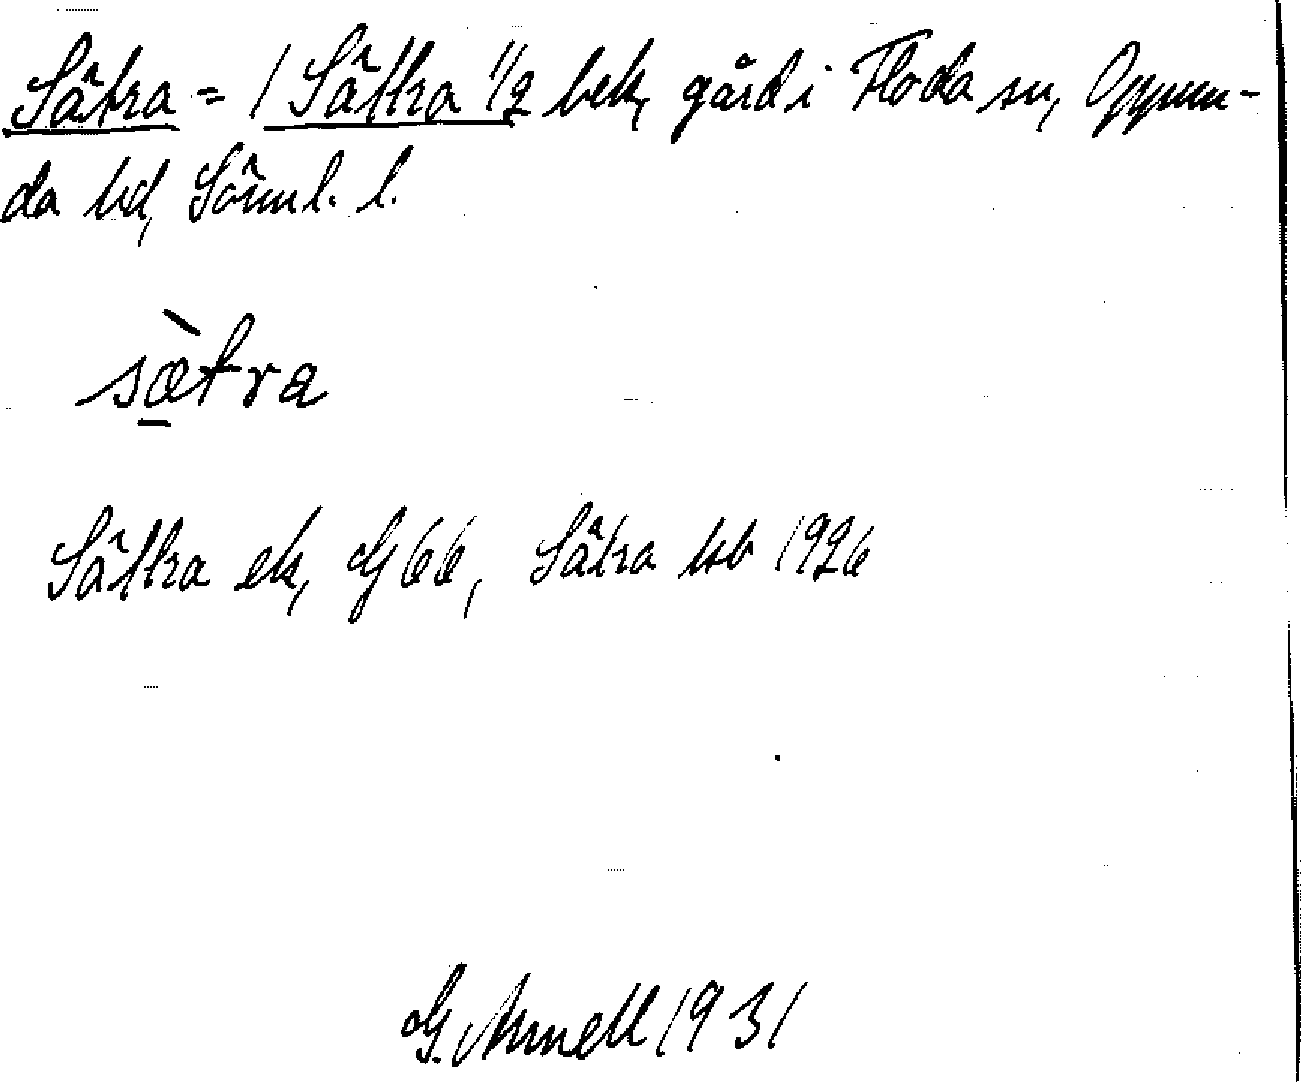 Sätra = / Sättra 1/2 bek, gård i Floda sn, Oppun-
da hd, Sörml. l.
sæ̀tra
Sättra ek, G 66, Sätra kb 1926
G. Arnell 1931